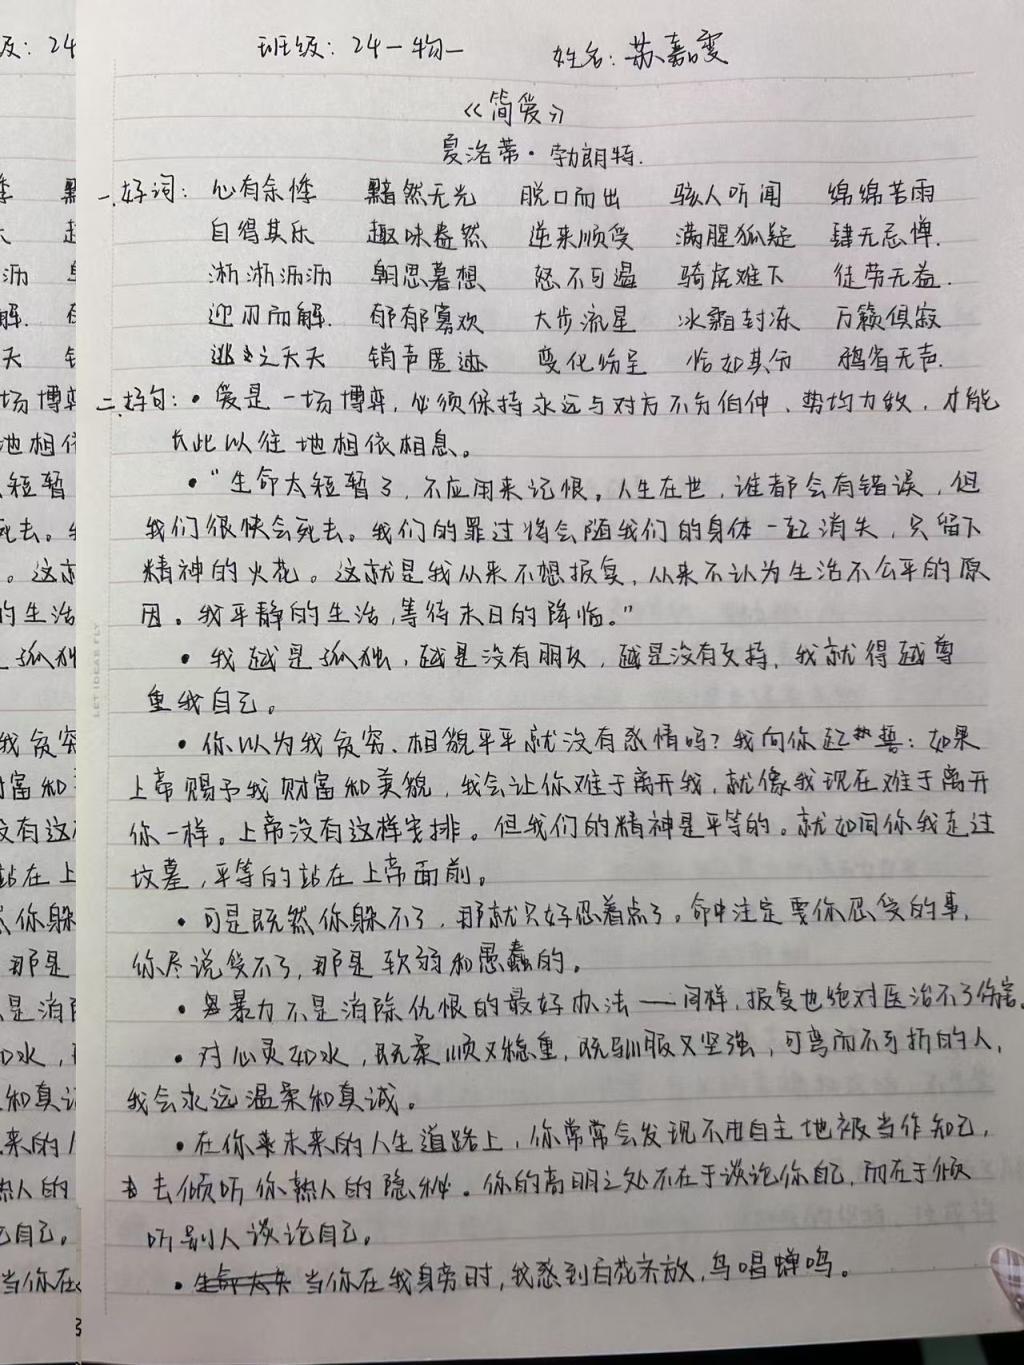 班级：24一物一 姓名：苏嘉雯
《简爱》
夏洛蒂·勃朗特.
一.好词：心有余悸 黯然无光 脱口而出 骇人听闻 绵绵苦雨
自得其乐 趣味盎然 逆来顺受 满腥狐疑 肆无忌惮.
淅淅沥沥 朝思暮想 怒不可遏 骑虎难下 徒劳无益.
迎刃而解. 郁郁寡欢 大步流星 冰霜封冻 万籁俱寂
逃之夭夭 销声匿迹 变化纷呈 恰如其分 鸦雀无声.
二.好句：·爱是一场博弈，必须保持永远与对方不分伯仲、势均力敌，才能
长此以往地相依相息。
·“生命太短暂了，不应用来记恨。人生在世，谁都会有错误，但
我们很快会死去。我们的罪过将会随我们的身体一起消失，只留下
精神的火花。这就是我从来不想报复，从来不认为生活不公平的原
因。我平静的生活，等待末日的降临。”
·我越是孤独，越是没有朋友，越是没有支持，我就得越尊
重我自己。
·你以为我贫穷、相貌平平就没有感情吗？我向你起誓：如果
上帝赐予我财富和美貌，我会让你难于离开我，就像我现在难于离开
你一样。上帝没有这样安排。但我们的精神是平等的。就如同你我走过
坟墓，平等的站在上帝面前。
·可是既然你躲不了，那就只好忍着点了。命中注定要你忍受的事，
你尽说受不了，那是软弱和愚蠢的。
·暴力不是消除仇恨的最好办法——同样，报复也绝对医治不了伤害。
·对心灵如水，既柔顺又稳重，既驯服又坚强，可弯而不可折的人，
我会永远温柔和真诚。
·在你未来的人生道路上，你常常会发现不由自主地被当作知己，
去倾听你熟人的隐秘。你的高明之处不在于谈论你自己，而在于倾
听别人谈论自己。
·当你在我身旁时，我感到百花齐放，鸟唱蝉鸣。